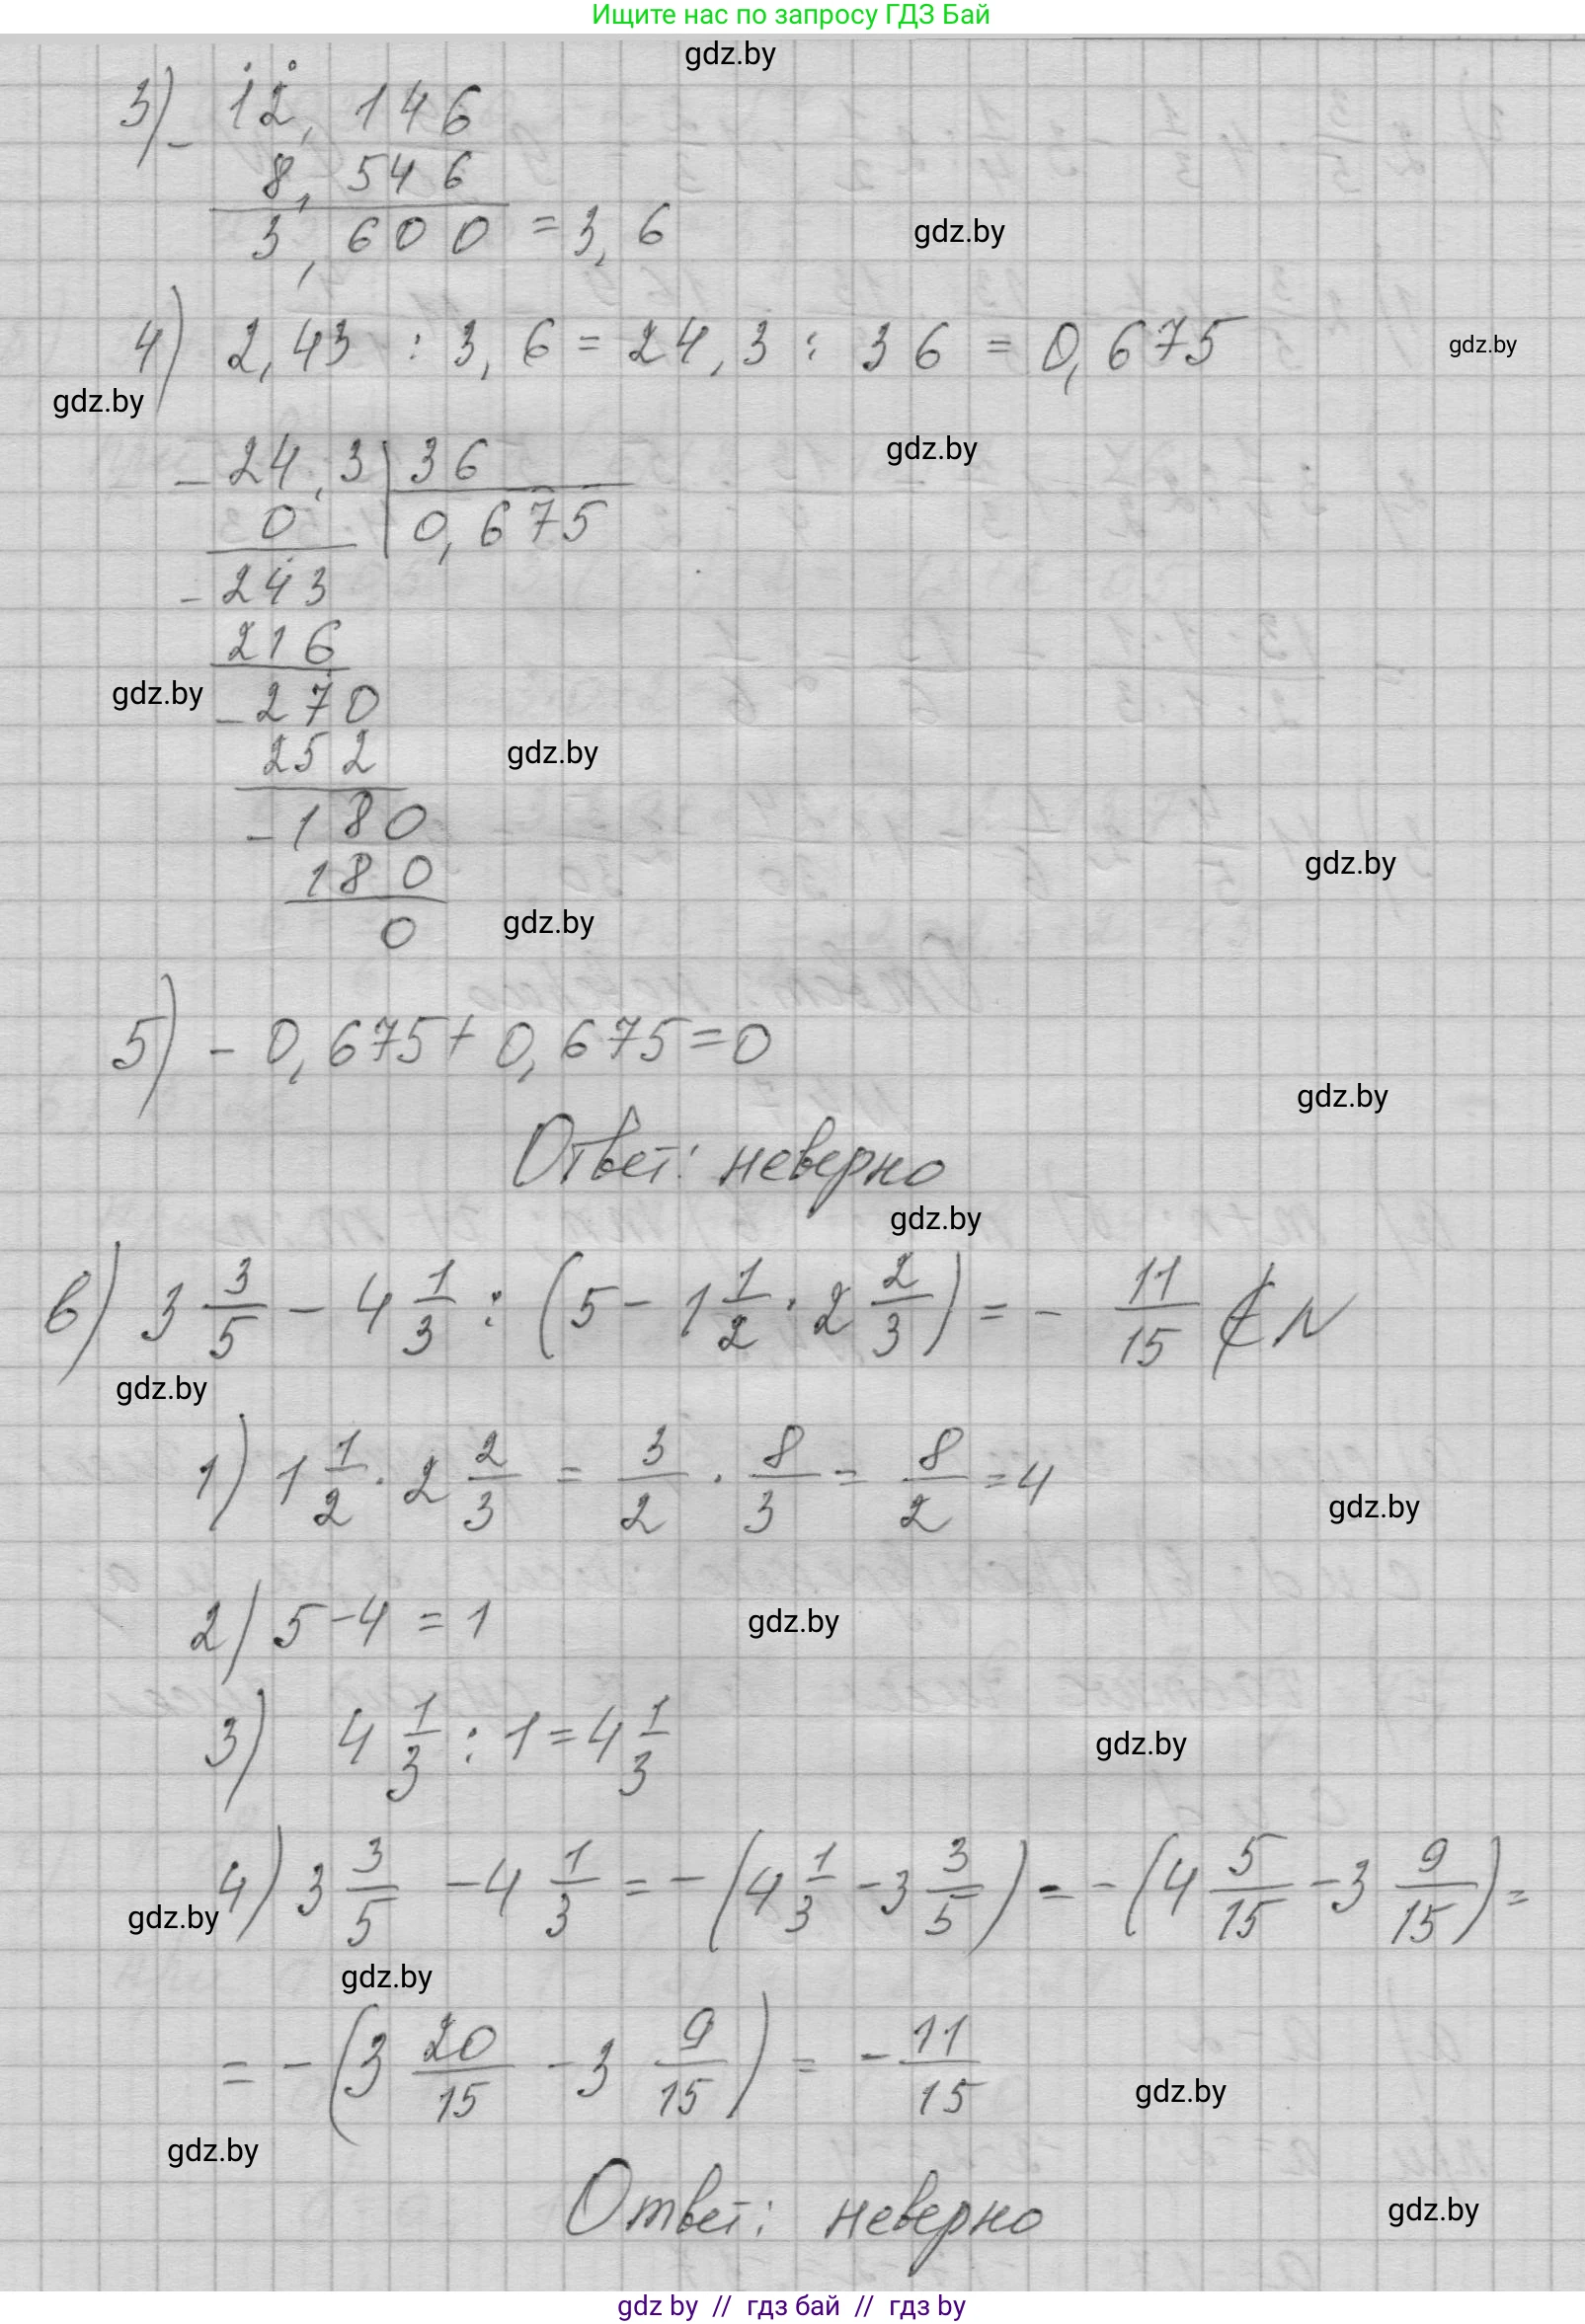 Ищите нас по запросу ГДЗ Бай
gdz.by
3) - 12, 146
8, 546
3, 600 = 3, 6
gdz.by
4) 2,43 : 3, 6 = 24, 3 : 36 = 0, 675
gdz.by
gdz.by
gdz.by
- 24, 3 | 36
0 | 0, 675
- 243
216
gdz.by
- 270
252
gdz.by
- 180
180
gdz.by
0
gdz.by
5) - 0, 675 + 0, 675 = 0
gdz.by
Ответ: неверно
gdz.by
в) 3 3/5 - 4 1/3 : (5 - 1 1/2 · 2 2/3) = - 11/15 ∉ N
gdz.by
1) 1 1/2 · 2 2/3 = 3/2 · 8/3 = 8/2 = 4
gdz.by
2) 5 - 4 = 1
gdz.by
3) 4 1/3 : 1 = 4 1/3
gdz.by
4) 3 3/5 - 4 1/3 = - (4 1/3 - 3 3/5) = - (4 5/15 - 3 9/15) =
gdz.by
gdz.by
= - (3 20/15 - 3 9/15) = - 11/15
gdz.by
gdz.by
Ответ: неверно
gdz.by
gdz by // гдз бай // гдз by